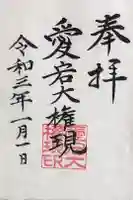 奉拝
愛宕大権現
令和三年一月一日